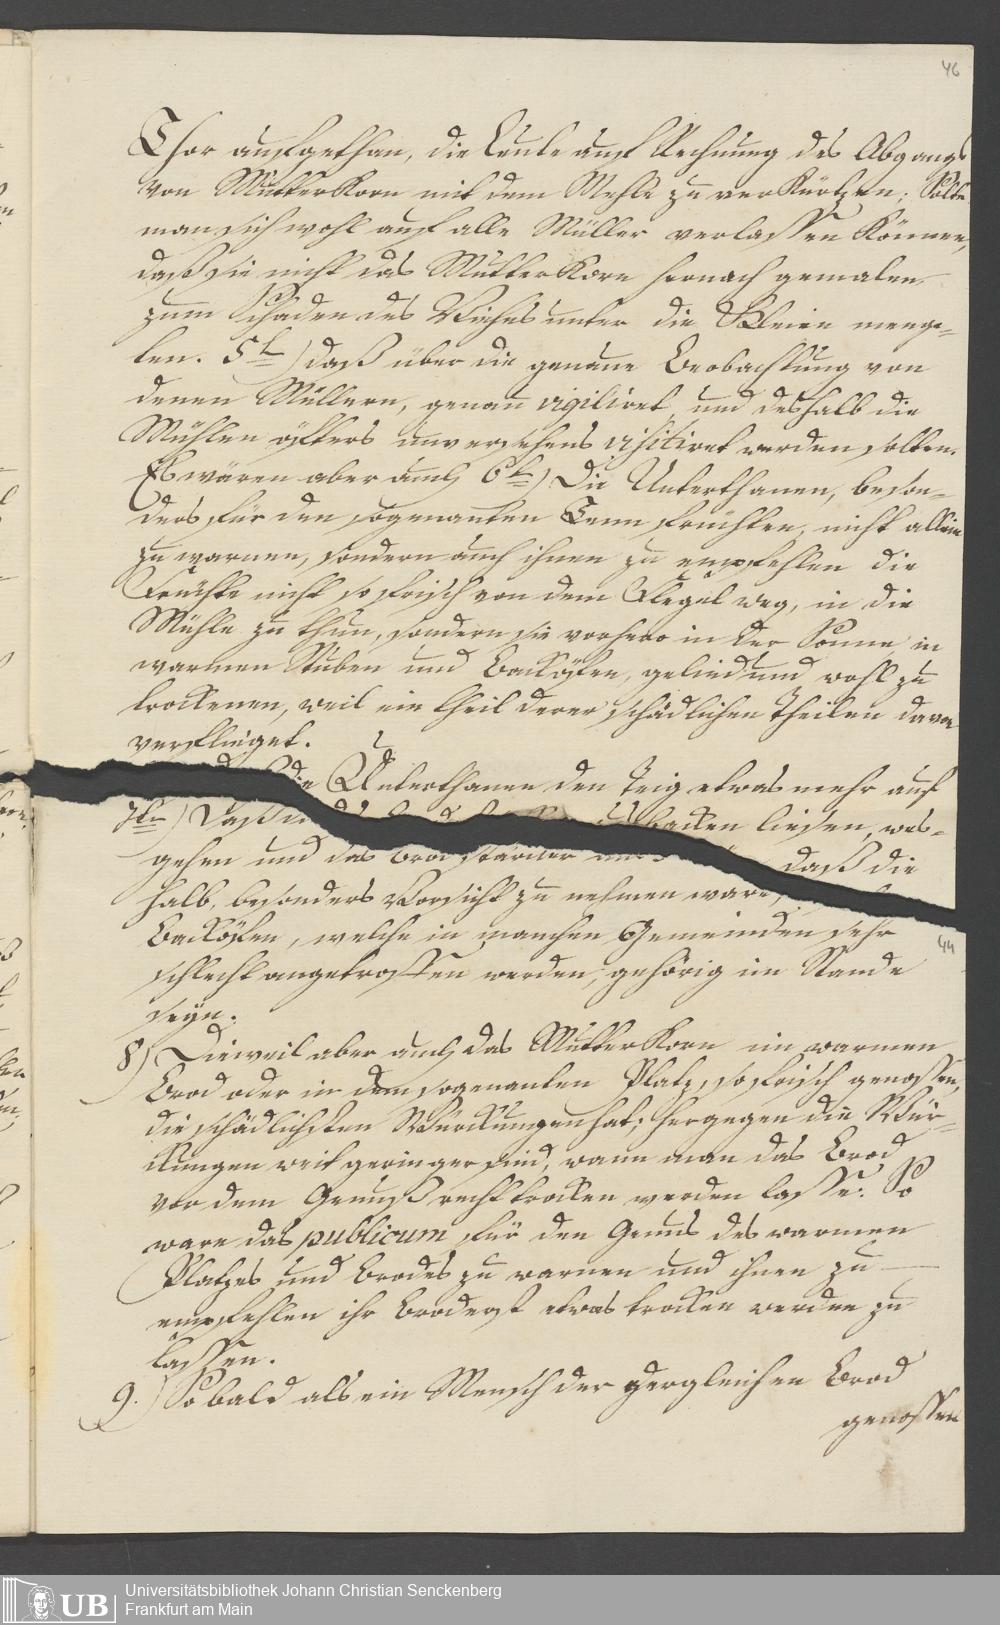 46
Thor aufgethan, die Leute auf Rechnung des Abgangs
von MutterKorn mit dem Mehle zu verKürtzen; Solte
man sich wohl auf alle Müller verlassen Können,
daß sie nicht das MutterKorn hernach gemalen
zum Schaden des Viehes unter die Kleien meng-
ten. 5t.) daß über die genaue Beobachtung von
denen Müllern, genau vigiliret, und deshalb die
Mühlen öfters unversehens visitiret werden solten.
Es wären aber auch 6t.) Die Unterthanen, beson-
ders für den sogenanten Tenn früchten, nicht allein
zu warnen, sondern auch ihnen zu empfehlen die
Früchte nicht so frisch von dem Flegel weg, in die
Mühle zu thun, sondern sie vorhero in der Sonne, in
warmen Stuben und Backöfen, gelind und wohl zu
trockenen, weil ein theil derer schädlichen Theilen davon
verflieget.
die Unterthanen den Teig etwas mehr auf
7tn) Daß backen liesen, wes-
gehen und das Brod stärcker daß die
halb, besonders Vorsicht zu nehmen ware,
Backöfen, welche in manchen Gemeinden sehr
44
schlecht angetroffen werden, gehörig im Stande
seyn.
8) Dieweil aber auch das MutterKorn im warmen
Brod oder in dem sogenanten Platz, so frisch genossen,
die schädlichsten Würckungen hat; hergegen die Wür-
ckungen weit geringer sind, wann man das Brod
vor dem Genuß recht trocken werden lasse: So
ware das publicum für den Genus des warmen
Platzes und Brodes zu warnen und ihnen zu
empfehlen ihr Brod erst etwas trocken werden zu
lassen.
9.) So bald als ein Mensch der dergleichen Brod
genossen
UB
Universitätsbibliothek Johann Christian Senckenberg
Frankfurt am Main